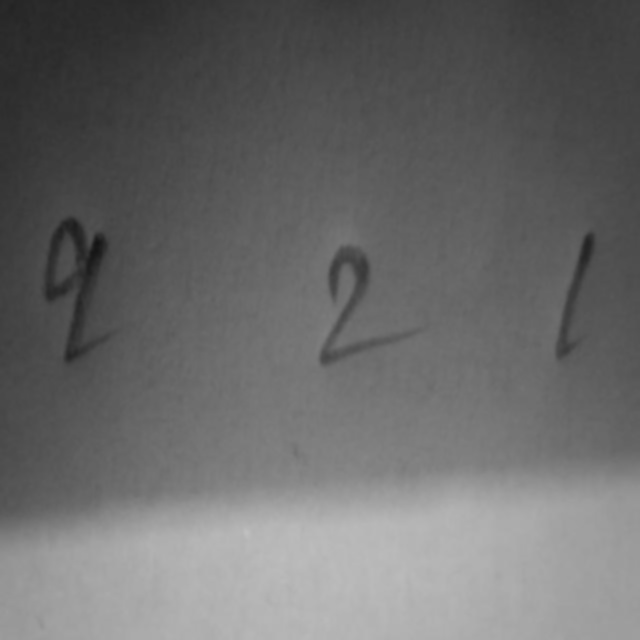 9 2 1